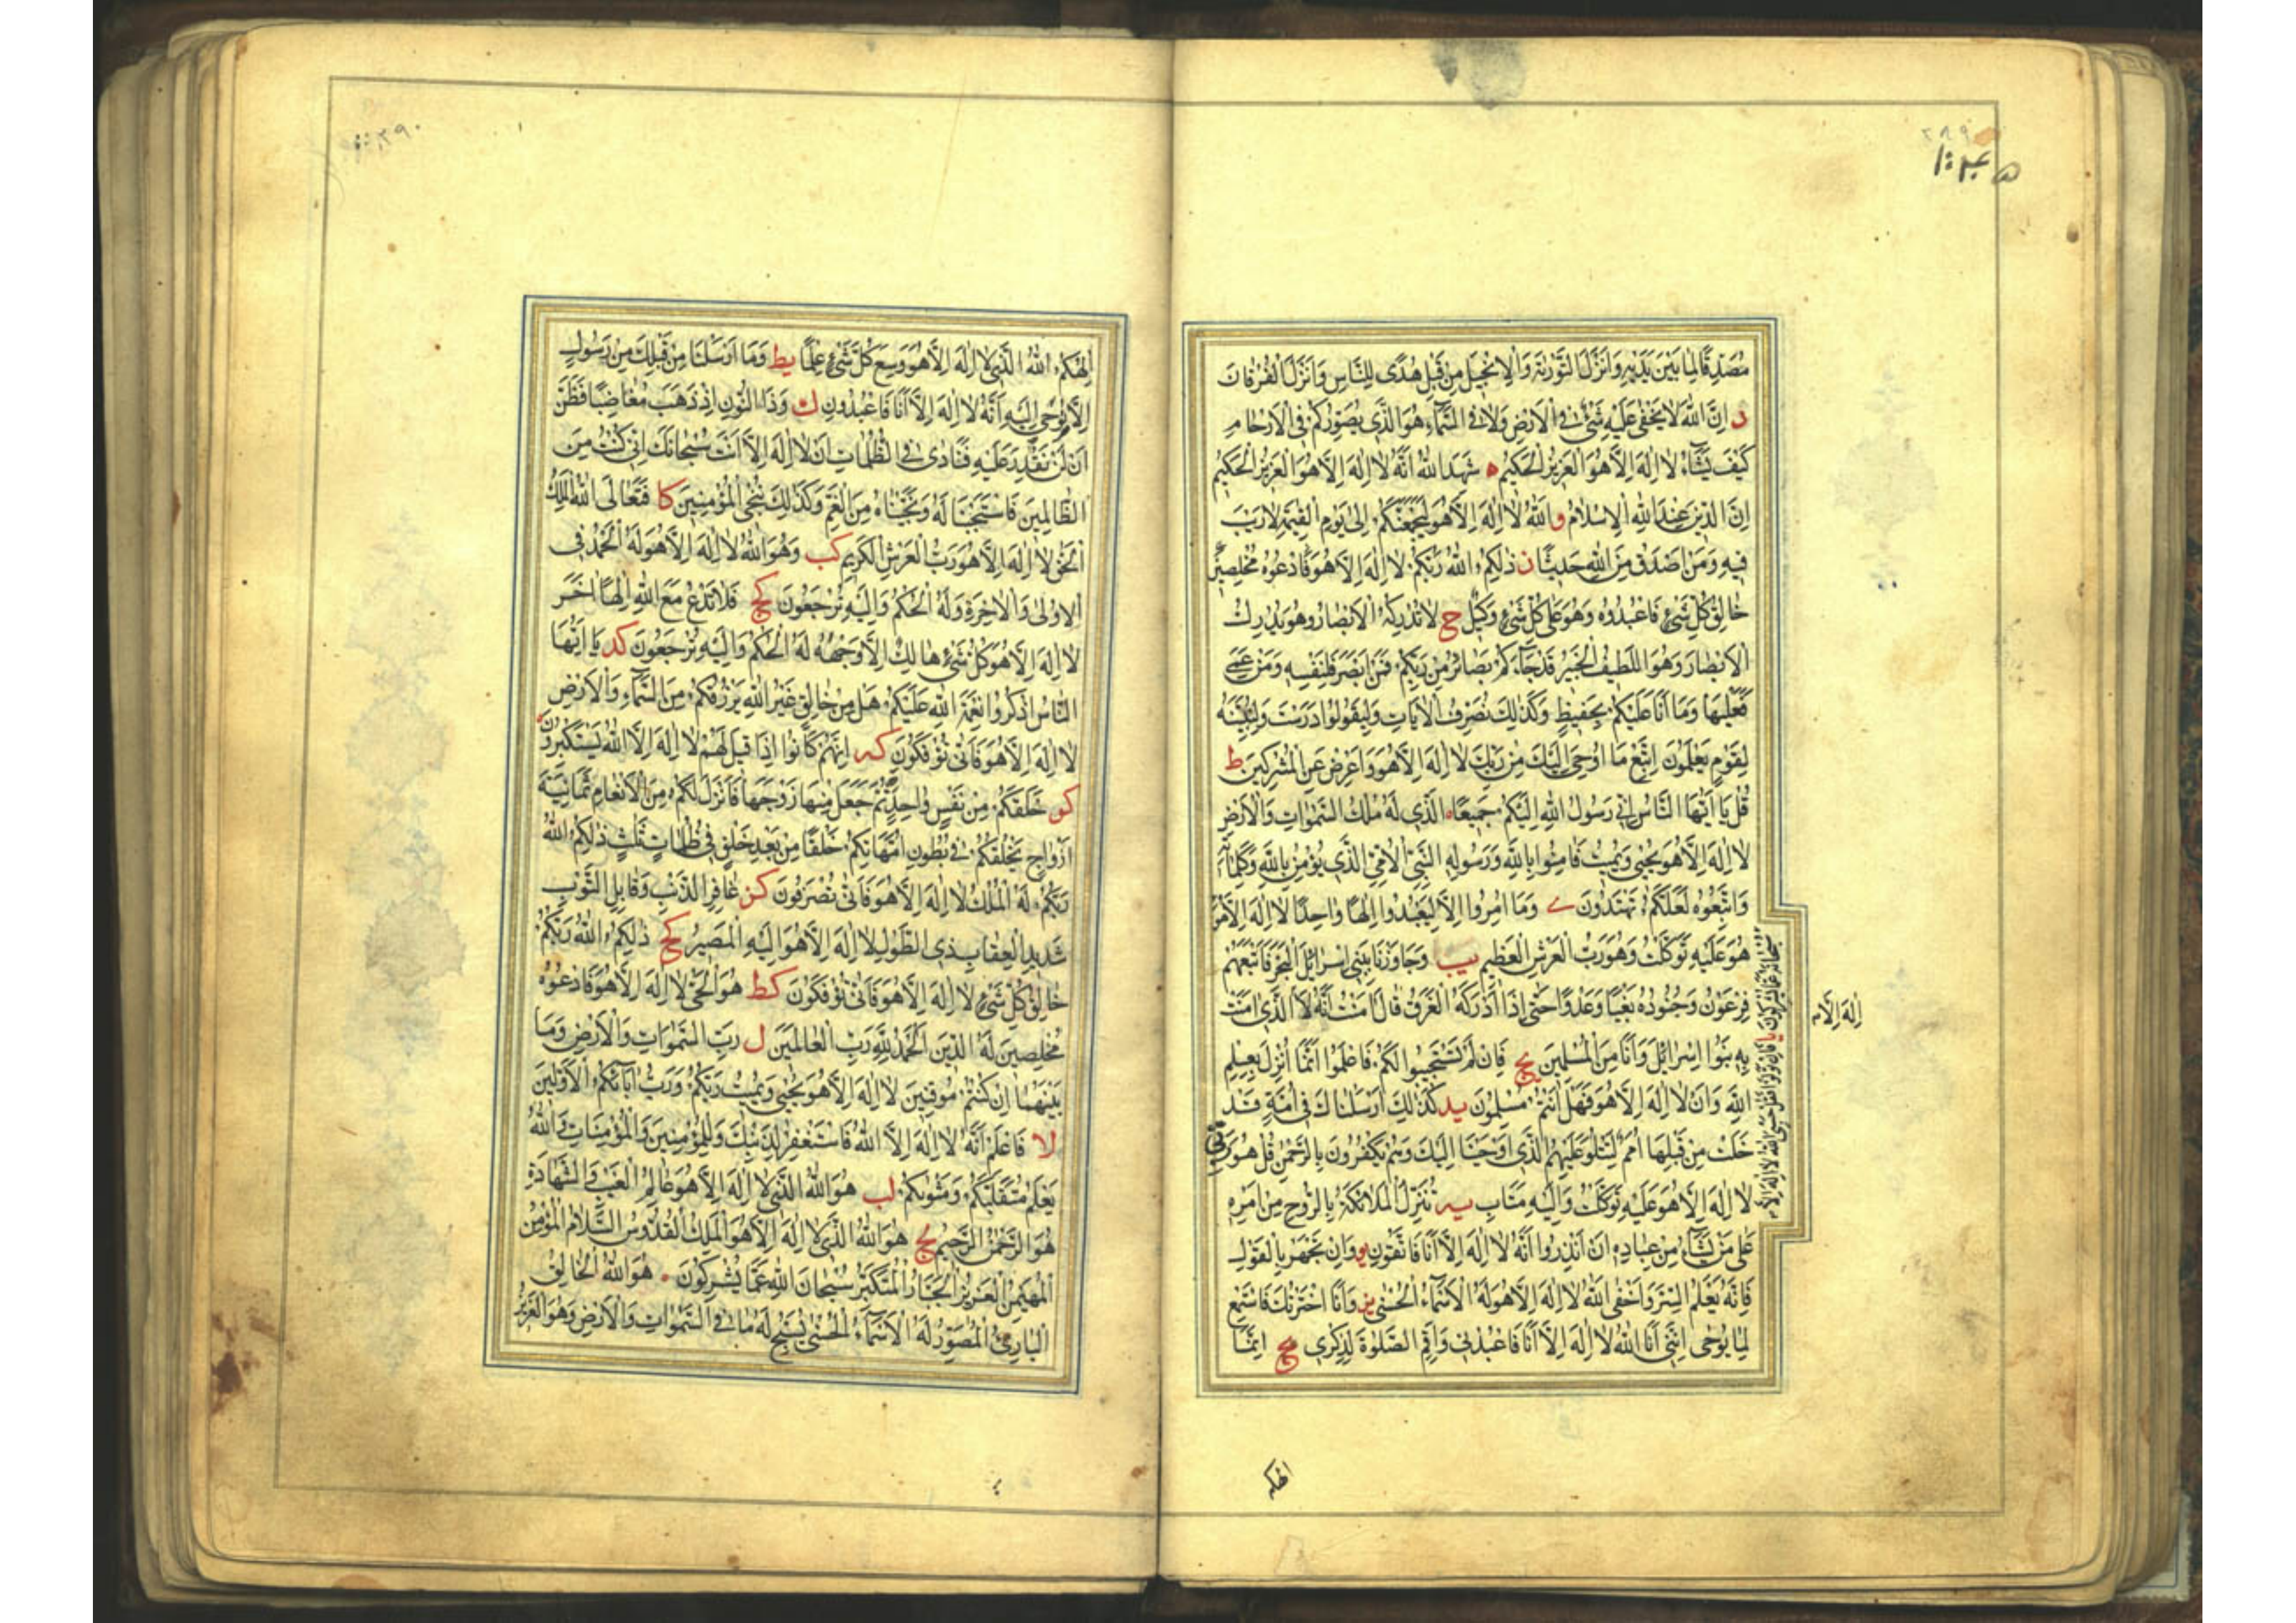 ٢٨٩
مُصَدِّقًا لِمَا بَيْنَ يَدَيْهِ وَاَنْزَلَ التَّوْرٰيةَ وَالْاِنْجٖيلَ مِنْ قَبْلُ هُدًى لِلنَّاسِ وَاَنْزَلَ الْفُرْقَانَ
د اِنَّ اللّٰهَ لَا يَخْفٰى عَلَيْهِ شَىْءٌ فِى الْاَرْضِ وَلَا فِى السَّمَاءِ هُوَ الَّذٖى يُصَوِّرُكُمْ فِى الْاَرْحَامِ
كَيْفَ يَشَاءُ لَا اِلٰهَ اِلَّا هُوَ الْعَزٖيزُ الْحَكٖيمُ ه شَهِدَ اللّٰهُ اَنَّهُ لَا اِلٰهَ اِلَّا هُوَ الْعَزٖيزُ الْحَكٖيمُ
اِنَّ الدّٖينَ عِنْدَ اللّٰهِ الْاِسْلَامُ و اللّٰهُ لَا اِلٰهَ اِلَّا هُوَ لَيَجْمَعَنَّكُمْ اِلٰى يَوْمِ الْقِيٰمَةِ لَا رَيْبَ
فٖيهِ وَمَنْ اَصْدَقُ مِنَ اللّٰهِ حَدٖيثًا ز ذٰلِكُمُ اللّٰهُ رَبُّكُمْ لَا اِلٰهَ اِلَّا هُوَ فَادْعُوهُ مُخْلِصٖينَ
خَالِقُ كُلِّ شَىْءٍ فَاعْبُدُوهُ وَهُوَ عَلٰى كُلِّ شَىْءٍ وَكٖيلٌ ح لَا تُدْرِكُهُ الْاَبْصَارُ وَهُوَ يُدْرِكُ
الْاَبْصَارَ وَهُوَ اللَّطٖيفُ الْخَبٖيرُ قَدْ جَاءَكُمْ بَصَائِرُ مِنْ رَبِّكُمْ فَمَنْ اَبْصَرَ فَلِنَفْسِهٖ وَمَنْ عَمِىَ
فَعَلَيْهَا وَمَا اَنَا عَلَيْكُمْ بِحَفٖيظٍ وَكَذٰلِكَ نُصَرِّفُ الْاٰيَاتِ وَلِيَقُولُوا دَرَسْتَ وَلِنُبَيِّنَهُ
لِقَوْمٍ يَعْلَمُونَ اِتَّبِعْ مَا اُوحِىَ اِلَيْكَ مِنْ رَبِّكَ لَا اِلٰهَ اِلَّا هُوَ وَاَعْرِضْ عَنِ الْمُشْرِكٖينَ ط
قُلْ يَا اَيُّهَا النَّاسُ اِنّٖى رَسُولُ اللّٰهِ اِلَيْكُمْ جَمٖيعًا الَّذٖى لَهُ مُلْكُ السَّمٰوَاتِ وَالْاَرْضِ
لَا اِلٰهَ اِلَّا هُوَ يُحْيٖى وَيُمٖيتُ فَاٰمِنُوا بِاللّٰهِ وَرَسُولِهِ النَّبِىِّ الْاُمِّىِّ الَّذٖى يُؤْمِنُ بِاللّٰهِ وَكَلِمَاتِهٖ
وَاتَّبِعُوهُ لَعَلَّكُمْ تَهْتَدُونَ ى وَمَا اُمِرُوا اِلَّا لِيَعْبُدُوا اِلٰهًا وَاحِدًا لَا اِلٰهَ اِلَّا هُوَ
سُبْحَانَهُ عَمَّا يُشْرِكُونَ يا فَاِنْ تَوَلَّوْا فَقُلْ حَسْبِىَ اللّٰهُ لَا اِلٰهَ اِلَّا
اِلٰهَ اِلَّا
هُوَ عَلَيْهِ تَوَكَّلْتُ وَهُوَ رَبُّ الْعَرْشِ الْعَظٖيمِ يب وَجَاوَزْنَا بِبَنٖى اِسْرَائٖلَ الْبَحْرَ فَاَتْبَعَهُمْ
فِرْعَوْنُ وَجُنُودُهُ بَغْيًا وَعَدْوًا حَتّٰى اِذَا اَدْرَكَهُ الْغَرَقُ قَالَ اٰمَنْتُ اَنَّهُ لَا الَّذٖى اٰمَنَتْ
بِهٖ بَنُوا اِسْرَائٖلَ وَاَنَا مِنَ الْمُسْلِمٖينَ يج فَاِنْ لَمْ يَسْتَجٖيبُوا لَكُمْ فَاعْلَمُوا اَنَّمَا اُنْزِلَ بِعِلْمِ
اللّٰهِ وَاَنْ لَا اِلٰهَ اِلَّا هُوَ فَهَلْ اَنْتُمْ مُسْلِمُونَ يد كَذٰلِكَ اَرْسَلْنَاكَ فٖى اُمَّةٍ قَدْ
خَلَتْ مِنْ قَبْلِهَا اُمَمٌ لِتَتْلُوَ عَلَيْهِمُ الَّذٖى اَوْحَيْنَا اِلَيْكَ وَهُمْ يَكْفُرُونَ بِالرَّحْمٰنِ قُلْ هُوَ رَبّٖى
لَا اِلٰهَ اِلَّا هُوَ عَلَيْهِ تَوَكَّلْتُ وَاِلَيْهِ مَتَابِ يه تُنَزَّلُ الْمَلَائِكَةُ بِالرُّوحِ مِنْ اَمْرِهٖ
عَلٰى مَنْ يَشَاءُ مِنْ عِبَادِهٖ اَنْ اَنْذِرُوا اَنَّهُ لَا اِلٰهَ اِلَّا اَنَا فَاتَّقُونِ يو وَاِنْ تَجْهَرْ بِالْقَوْلِ
فَاِنَّهُ يَعْلَمُ السِّرَّ وَاَخْفٰى اَللّٰهُ لَا اِلٰهَ اِلَّا هُوَ لَهُ الْاَسْمَاءُ الْحُسْنٰى يز وَاَنَا اخْتَرْتُكَ فَاسْتَمِعْ
لِمَا يُوحٰى اِنَّنٖى اَنَا اللّٰهُ لَا اِلٰهَ اِلَّا اَنَا فَاعْبُدْنٖى وَاَقِمِ الصَّلٰوةَ لِذِكْرٖى يح اِنَّمَا
الٰهكم
٢٩٠
اِلٰهُكُمُ اللّٰهُ الَّذٖى لَا اِلٰهَ اِلَّا هُوَ وَسِعَ كُلَّ شَىْءٍ عِلْمًا يط وَمَا اَرْسَلْنَا مِنْ قَبْلِكَ مِنْ رَسُولٍ
اِلَّا يُوحٰى اِلَيْهِ اَنَّهُ لَا اِلٰهَ اِلَّا اَنَا فَاعْبُدُونِ ك وَذَا النُّونِ اِذْ ذَهَبَ مُغَاضِبًا فَظَنَّ
اَنْ لَنْ نَقْدِرَ عَلَيْهِ فَنَادٰى فِى الظُّلُمَاتِ اَنْ لَا اِلٰهَ اِلَّا اَنْتَ سُبْحَانَكَ اِنّٖى كُنْتُ مِنَ
الظَّالِمٖينَ فَاسْتَجَبْنَا لَهُ وَنَجَّيْنَاهُ مِنَ الْغَمِّ وَكَذٰلِكَ نُنْجِى الْمُؤْمِنٖينَ كا فَتَعَالَى اللّٰهُ الْمَلِكُ
الْحَقُّ لَا اِلٰهَ اِلَّا هُوَ رَبُّ الْعَرْشِ الْكَرٖيمِ كب وَهُوَ اللّٰهُ لَا اِلٰهَ اِلَّا هُوَ لَهُ الْحَمْدُ فِى
الْاُولٰى وَالْاٰخِرَةِ وَلَهُ الْحُكْمُ وَاِلَيْهِ تُرْجَعُونَ كج فَلَا تَدْعُ مَعَ اللّٰهِ اِلٰهًا اٰخَرَ
لَا اِلٰهَ اِلَّا هُوَ كُلُّ شَىْءٍ هَالِكٌ اِلَّا وَجْهَهُ لَهُ الْحُكْمُ وَاِلَيْهِ تُرْجَعُونَ كد يَا اَيُّهَا
النَّاسُ اذْكُرُوا نِعْمَةَ اللّٰهِ عَلَيْكُمْ هَلْ مِنْ خَالِقٍ غَيْرُ اللّٰهِ يَرْزُقُكُمْ مِنَ السَّمَاءِ وَالْاَرْضِ
لَا اِلٰهَ اِلَّا هُوَ فَاَنّٰى تُؤْفَكُونَ كه اِنَّهُمْ كَانُوا اِذَا قٖيلَ لَهُمْ لَا اِلٰهَ اِلَّا اللّٰهُ يَسْتَكْبِرُونَ
كو خَلَقَكُمْ مِنْ نَفْسٍ وَاحِدَةٍ ثُمَّ جَعَلَ مِنْهَا زَوْجَهَا فَاَنْزَلَ لَكُمْ مِنَ الْاَنْعَامِ ثَمَانِيَةَ
اَزْوَاجٍ يَخْلُقُكُمْ فٖى بُطُونِ اُمَّهَاتِكُمْ خَلْقًا مِنْ بَعْدِ خَلْقٍ فٖى ظُلُمَاتٍ ثَلٰثٍ ذٰلِكُمُ اللّٰهُ
رَبُّكُمْ لَهُ الْمُلْكُ لَا اِلٰهَ اِلَّا هُوَ فَاَنّٰى تُصْرَفُونَ كز غَافِرِ الذَّنْبِ وَقَابِلِ التَّوْبِ
شَدٖيدِ الْعِقَابِ ذِى الطَّوْلِ لَا اِلٰهَ اِلَّا هُوَ اِلَيْهِ الْمَصٖيرُ كح ذٰلِكُمُ اللّٰهُ رَبُّكُمْ
خَالِقُ كُلِّ شَىْءٍ لَا اِلٰهَ اِلَّا هُوَ فَاَنّٰى تُؤْفَكُونَ كط هُوَ الْحَىُّ لَا اِلٰهَ اِلَّا هُوَ فَادْعُوهُ
مُخْلِصٖينَ لَهُ الدّٖينَ اَلْحَمْدُ لِلّٰهِ رَبِّ الْعَالَمٖينَ ل رَبِّ السَّمٰوَاتِ وَالْاَرْضِ وَمَا
بَيْنَهُمَا اِنْ كُنْتُمْ مُوقِنٖينَ لَا اِلٰهَ اِلَّا هُوَ يُحْيٖى وَيُمٖيتُ رَبُّكُمْ وَرَبُّ اٰبَائِكُمُ الْاَوَّلٖينَ
لا فَاعْلَمْ اَنَّهُ لَا اِلٰهَ اِلَّا اللّٰهُ فَاسْتَغْفِرْ لِذَنْبِكَ وَلِلْمُؤْمِنٖينَ وَالْمُؤْمِنَاتِ وَاللّٰهُ
يَعْلَمُ مُتَقَلَّبَكُمْ وَمَثْوٰيكُمْ لب هُوَ اللّٰهُ الَّذٖى لَا اِلٰهَ اِلَّا هُوَ عَالِمُ الْغَيْبِ وَالشَّهَادَةِ
هُوَ الرَّحْمٰنُ الرَّحٖيمُ لج هُوَ اللّٰهُ الَّذٖى لَا اِلٰهَ اِلَّا هُوَ الْمَلِكُ الْقُدُّوسُ السَّلَامُ الْمُؤْمِنُ
الْمُهَيْمِنُ الْعَزٖيزُ الْجَبَّارُ الْمُتَكَبِّرُ سُبْحَانَ اللّٰهِ عَمَّا يُشْرِكُونَ هُوَ اللّٰهُ الْخَالِقُ
الْبَارِئُ الْمُصَوِّرُ لَهُ الْاَسْمَاءُ الْحُسْنٰى يُسَبِّحُ لَهُ مَا فِى السَّمٰوَاتِ وَالْاَرْضِ وَهُوَ الْعَزٖيزُ